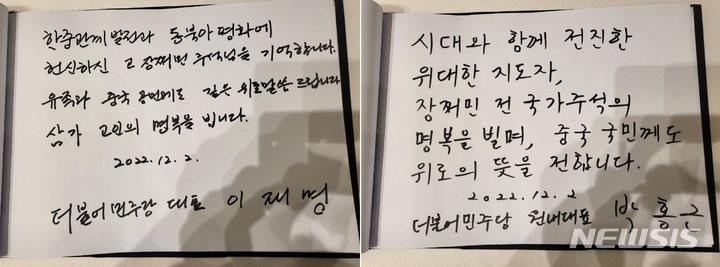 한중관계 발전과 동북아 평화에
헌신하신 고 장쩌민 주석님을 기억합니다.
유족과 중국 국민에도 깊은 위로말씀 드립니다
삼가 고인의 명복을 빕니다.
2022.12.2.
더불어민주당 대표 이재명
시대와 함께 전진한
위대한 지도자,
장쩌민 전 국가주석의
명복을 빌며, 중국 국민께도
위로의 뜻을 전합니다.
2022.12.2
더불어민주당 원내대표 박홍근
NEWSIS